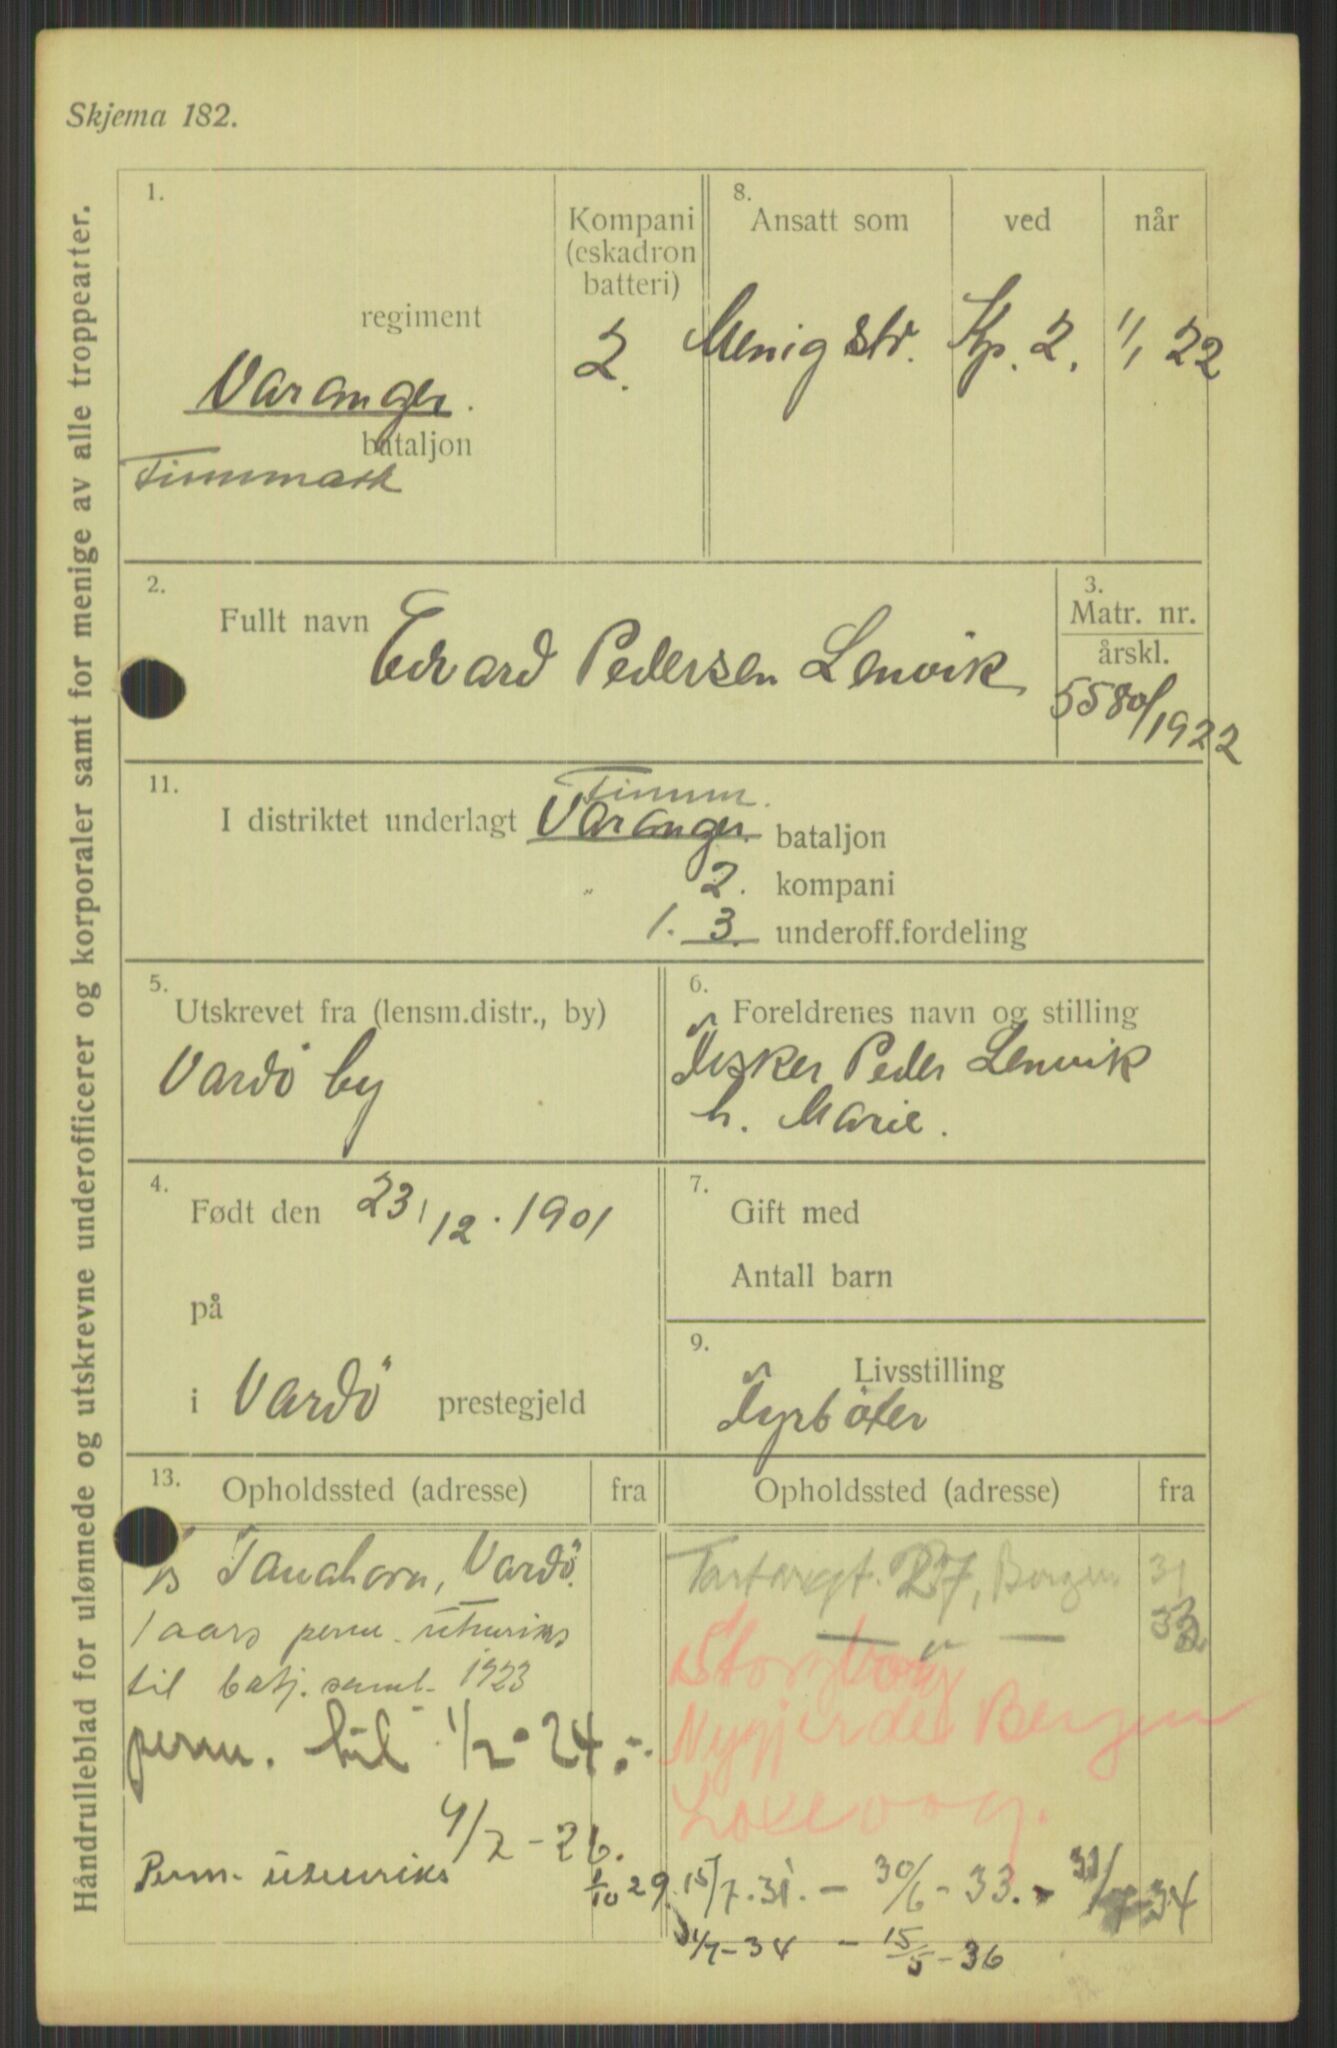 Skjema 182.
Håndrulleblad for ulønnede og utskrevne underofficerer og korporaler samt for menige av alle troppearter.
1.
regiment
Varanger.
bataljon
Finnmark
Kompani
(eskadron
batteri)
2.
8.
Ansatt som
ved
når
Menig str. Kp. 2. 1/1 22
2.
Fullt navn Edvard Pedersen Lenvik
3.
Matr. nr.
årskl.
5580/1922
11.
Finnm.
I distriktet underlagt Varanger. bataljon
" 2. kompani
1. 3. underoff.fordeling
5.
Utskrevet fra (lensm.distr., by)
Vardö by
6.
Foreldrenes navn og stilling
Fisker Peder Lenvik
h. Marie.
4.
Født den 23/12. 1901
på
i Vardö prestegjeld
7.
Gift med
Antall barn
9.
Livsstilling
Fyrböter
13.
Opholdssted (adresse) fra
Opholdssted (adresse) fra
Tanahorn, Vardö.
1 aars perm. utenriks
til batj. saml. 1923
perm. til 1/2-24.
4/2-26.
Perm. utenriks
1/10 29. 15/7.31. - 30/6-33. - 31/7-34
31/7-34 - 15/5-36
27, Bergen 31
32
Nygjerdet Bergen
Laxevaag.